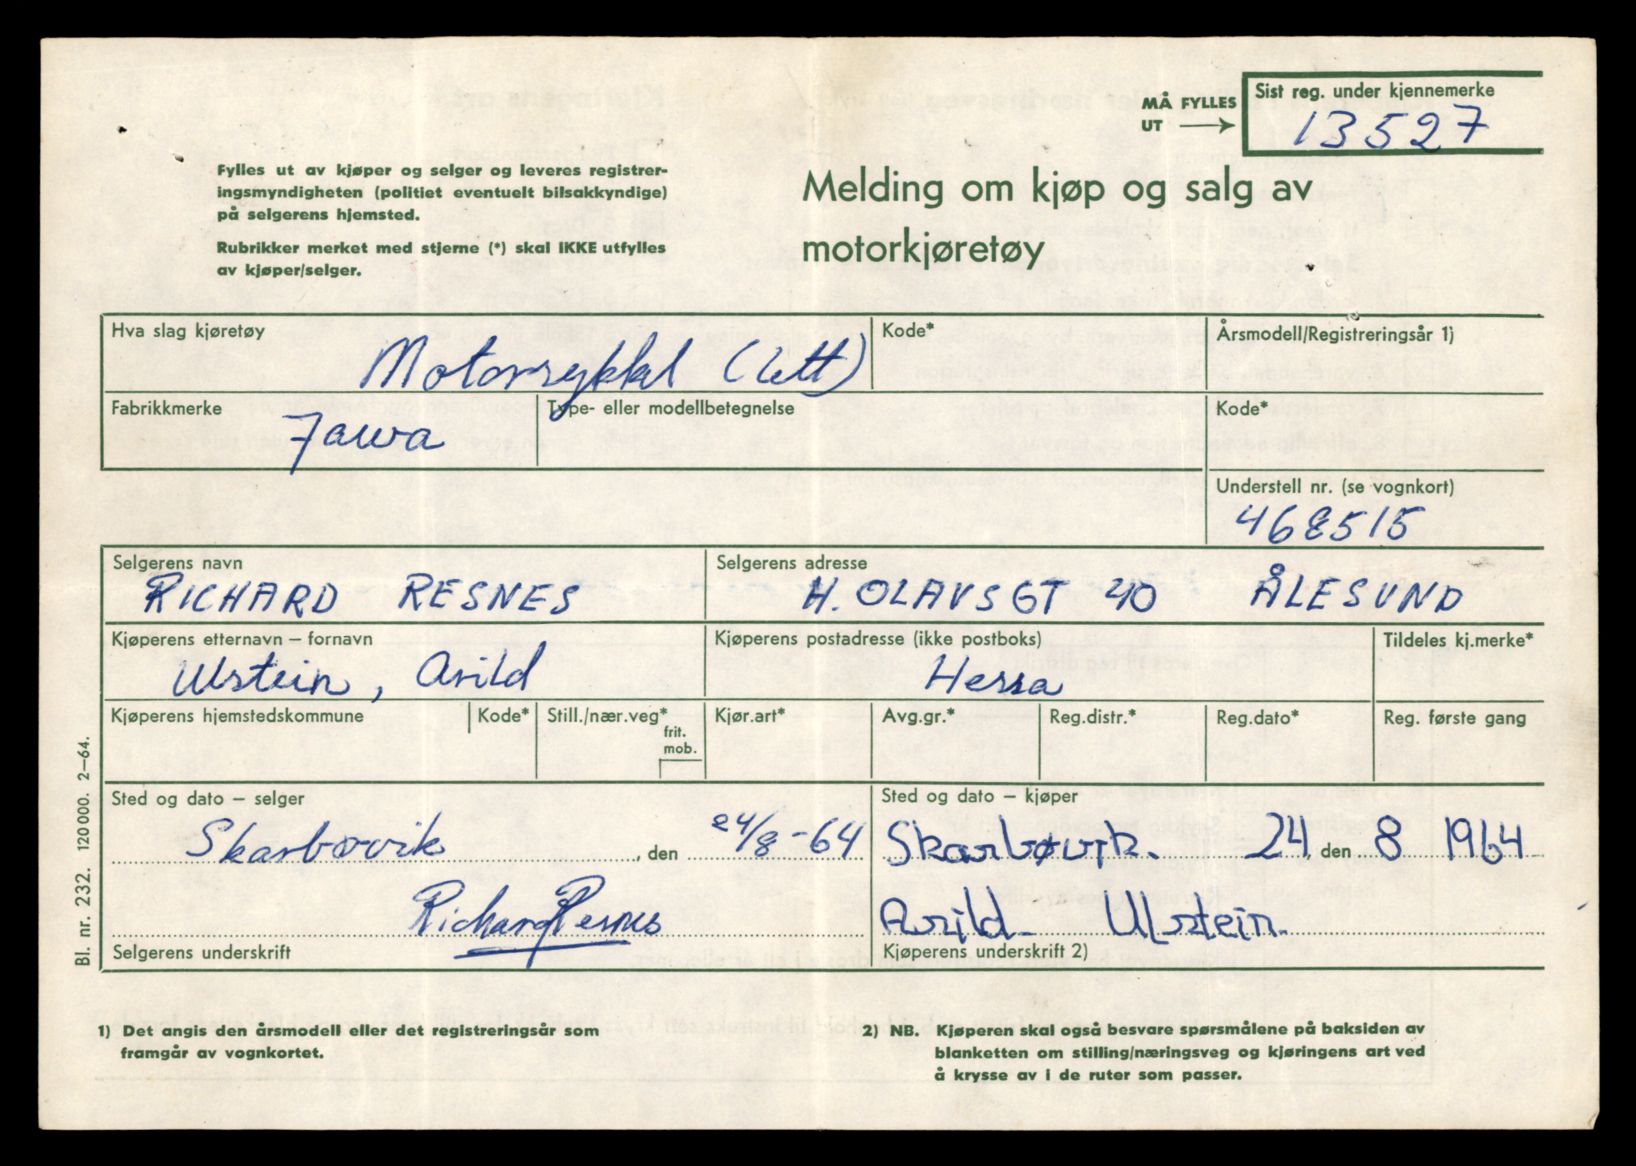 MÅ FYLLES UT
Sist reg. under kjennemerke
13527
Fylles ut av kjøper og selger og leveres registrer-
ingsmyndigheten (politiet eventuelt bilsakkyndige)
på selgerens hjemsted.
Rubrikker merket med stjerne (*) skal IKKE utfylles
av kjøper/selger.
Melding om kjøp og salg av
motorkjøretøy
Hva slag kjøretøy
Motorsykkel (lett)
Kode*
Årsmodell/Registreringsår 1)
Fabrikkmerke
Jawa
Type- eller modellbetegnelse
Kode*
Understell nr. (se vognkort)
468515
Selgerens navn
RICHARD RESNES
Selgerens adresse
H. OLAVSGT 40 ÅLESUND
Kjøperens etternavn – fornavn
Ulstein, Arild
Kjøperens postadresse (ikke postboks)
Hessa
Tildeles kj.merke*
Kjøperens hjemstedskommune
Kode*
Still./nær.veg*
frit.
mob.
Kjør.art*
Avg.gr.*
Reg.distr.*
Reg.dato*
Reg. første gang
Sted og dato – selger
Skarbøvik, den 24/8-64
Richard Resnes
Selgerens underskrift
Sted og dato – kjøper
Skarbøvik. 24, den 8 1964
Arild Ulstein.
Kjøperens underskrift 2)
Bl. nr. 232. 120000. 2–64.
1) Det angis den årsmodell eller det registreringsår som
framgår av vognkortet.
2) NB. Kjøperen skal også besvare spørsmålene på baksiden av
blanketten om stilling/næringsveg og kjøringens art ved
å krysse av i de ruter som passer.